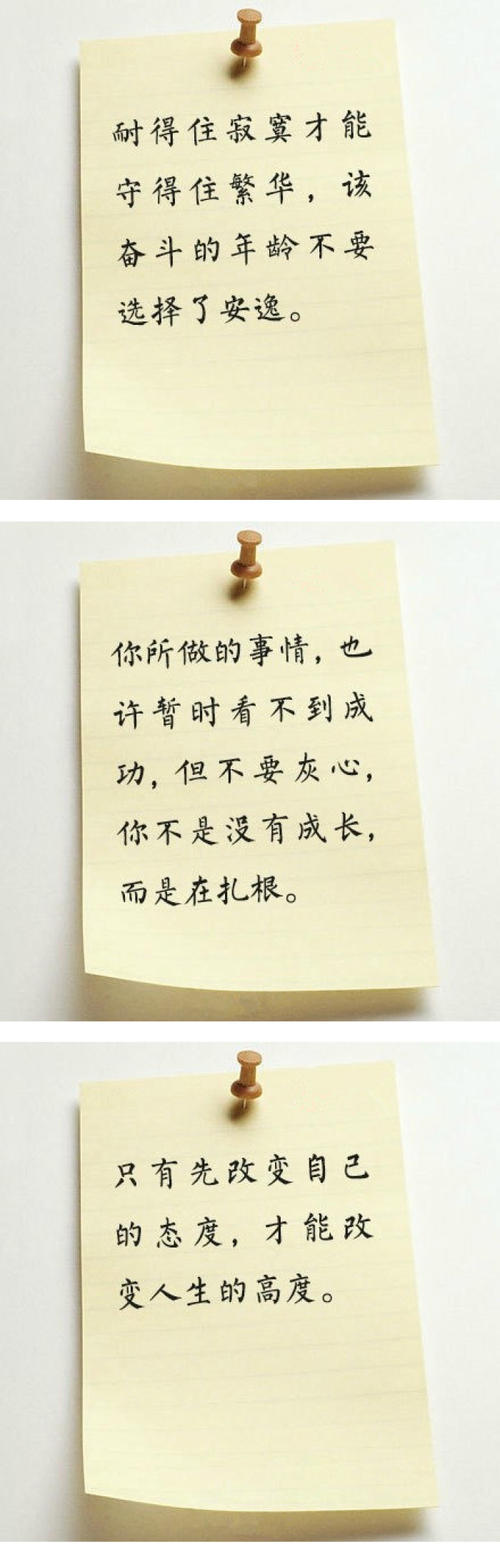 耐得住寂寞才能
守得住繁华，该
奋斗的年龄不要
选择了安逸。
你所做的事情，也
许暂时看不到成
功，但不要灰心，
你不是没有成长，
而是在扎根。
只有先改变自己
的态度，才能改
变人生的高度。